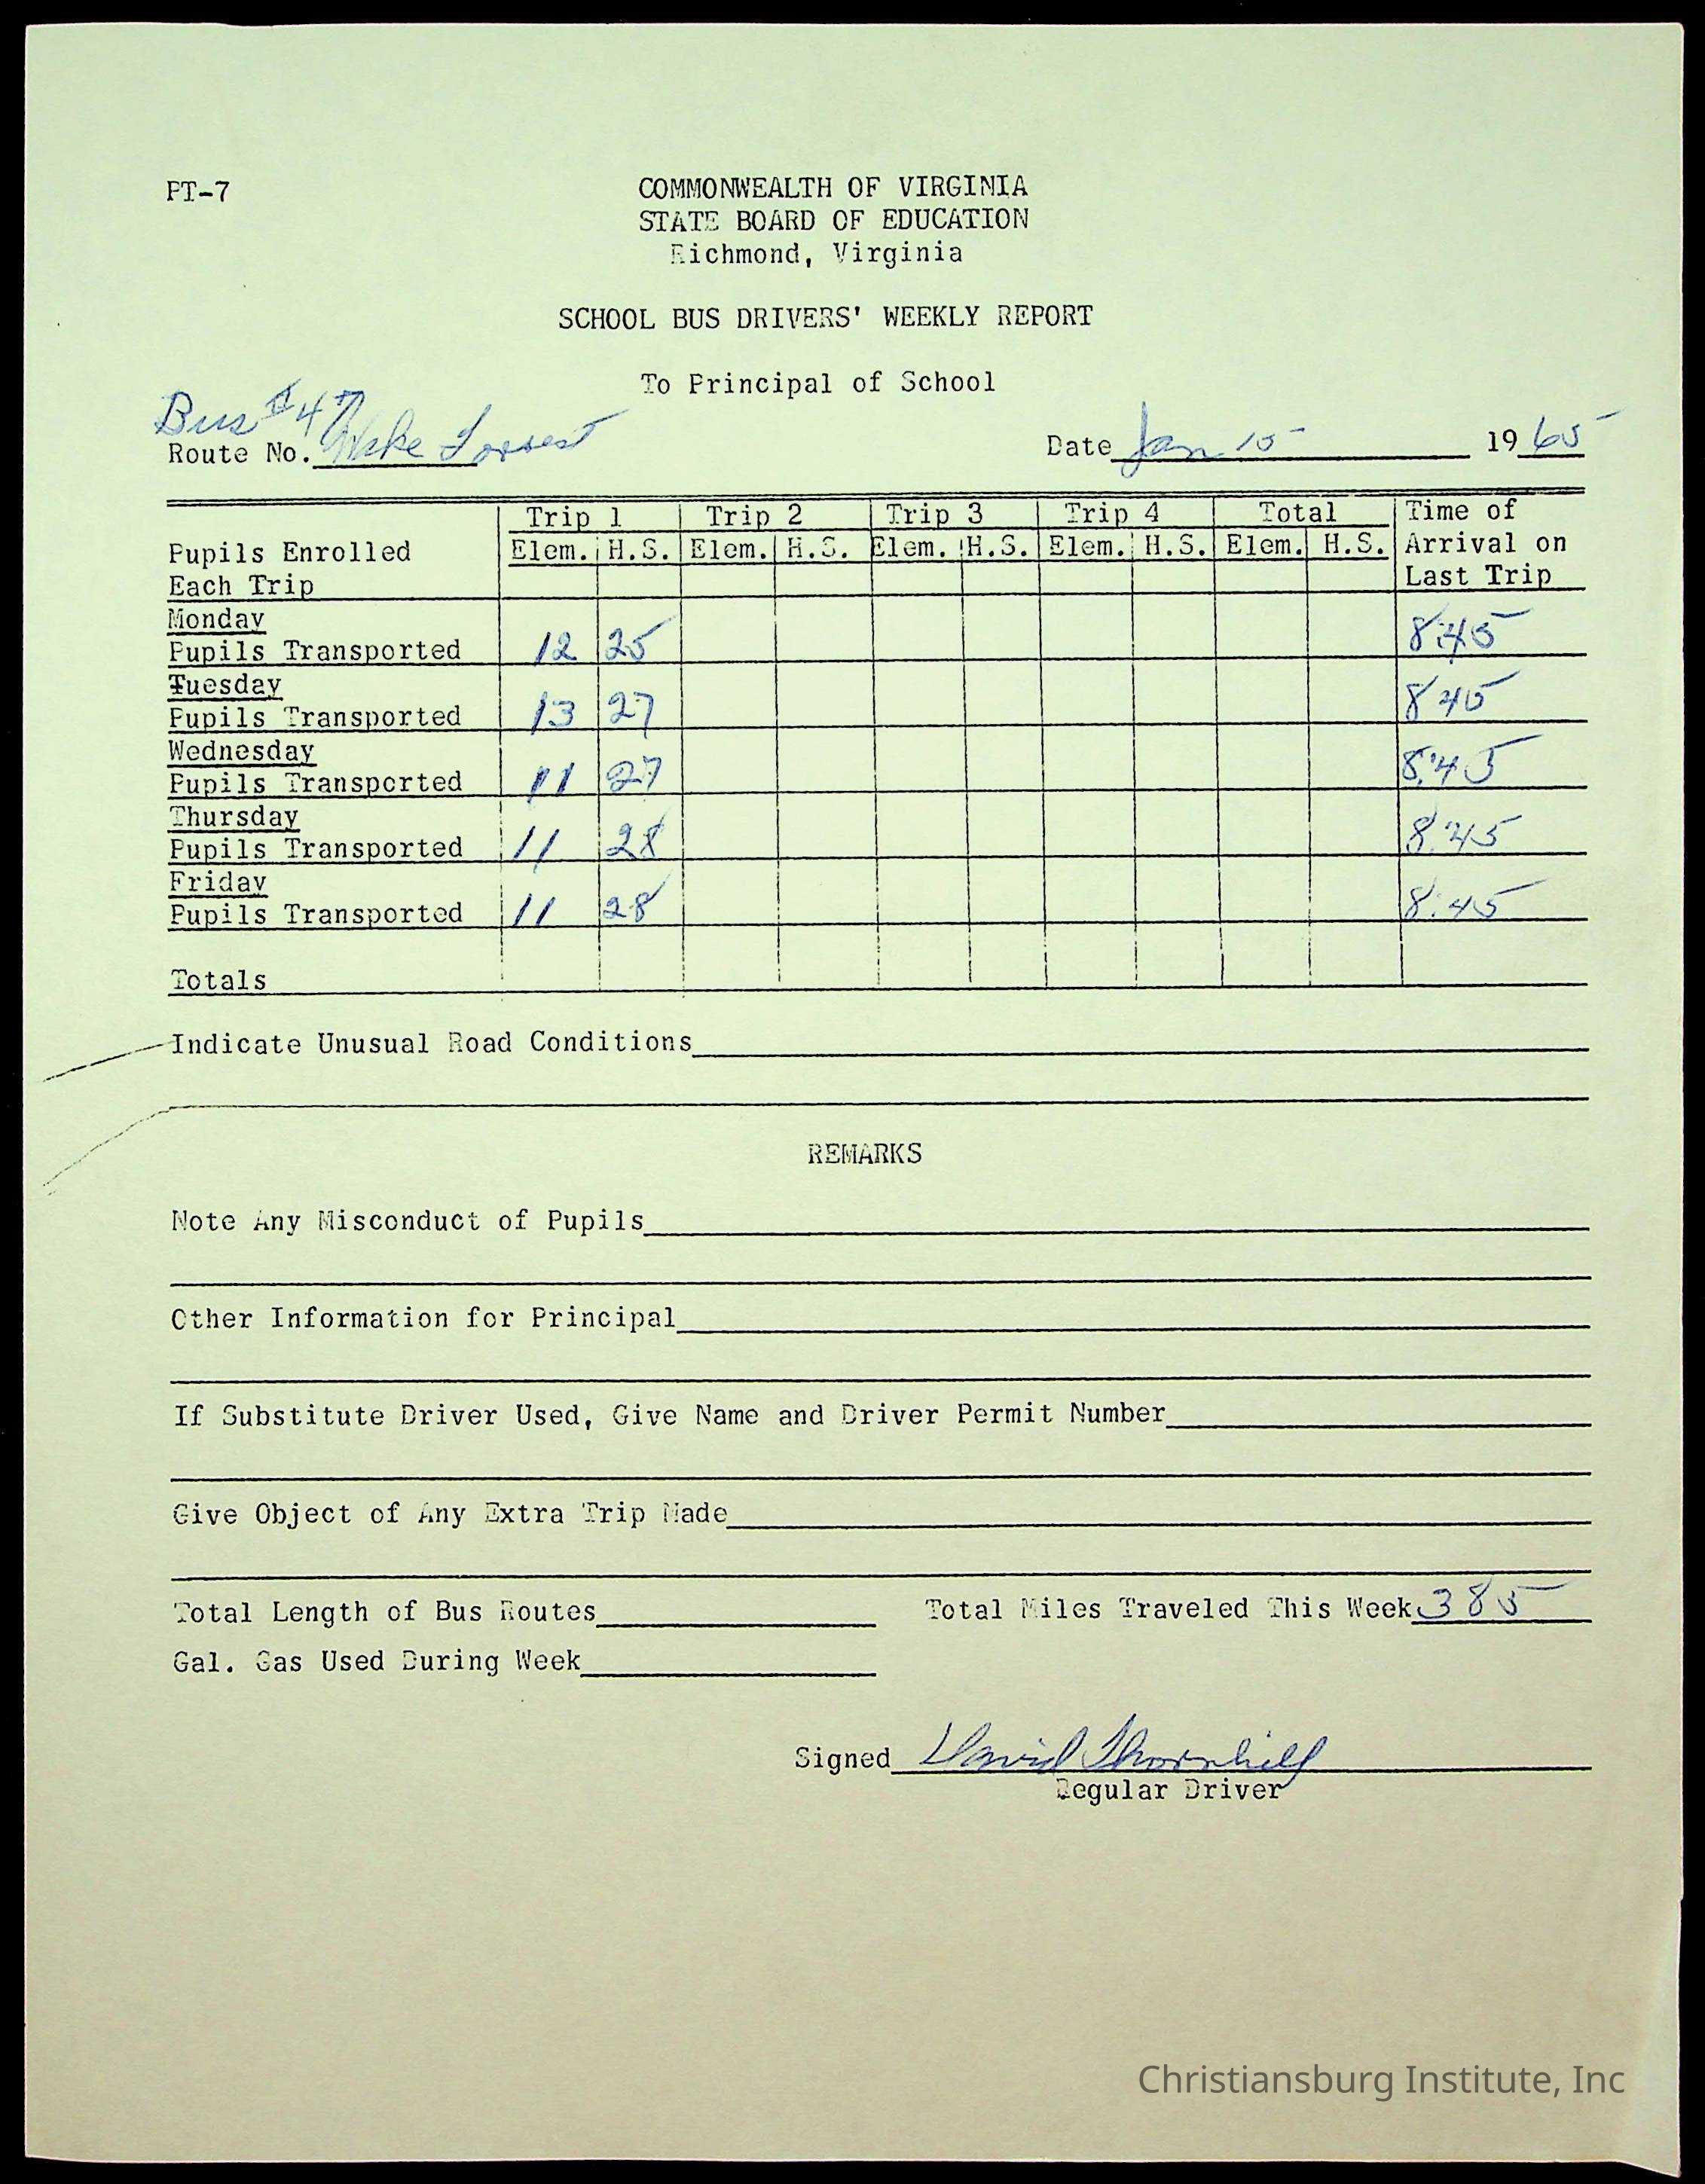 PT-7
COMMONWEALTH OF VIRGINIA
STATE BOARD OF EDUCATION
Richmond, Virginia
SCHOOL BUS DRIVERS' WEEKLY REPORT
To Principal of School
Bus #47
Route No. Wake Forrest Date Jan 15 19 65
Trip 1 Trip 2 Trip 3 Trip 4 Total Time of
Pupils Enrolled Elem. H.S. Elem. H.S. Elem. H.S. Elem. H.S. Elem. H.S. Arrival on
Each Trip Last Trip
Monday
Pupils Transported 12 25 8:45
Tuesday
Pupils Transported 13 27 8 45
Wednesday
Pupils Transported 11 27 8:45
Thursday
Pupils Transported 11 28 8:45
Friday
Pupils Transported 11 28 8:45
Totals
Indicate Unusual Road Conditions
REMARKS
Note Any Misconduct of Pupils
Other Information for Principal
If Substitute Driver Used, Give Name and Driver Permit Number
Give Object of Any Extra Trip Made
Total Length of Bus Routes Total Miles Traveled This Week 385
Gal. Gas Used During Week
Signed David Thornhill
Regular Driver
Christiansburg Institute, Inc